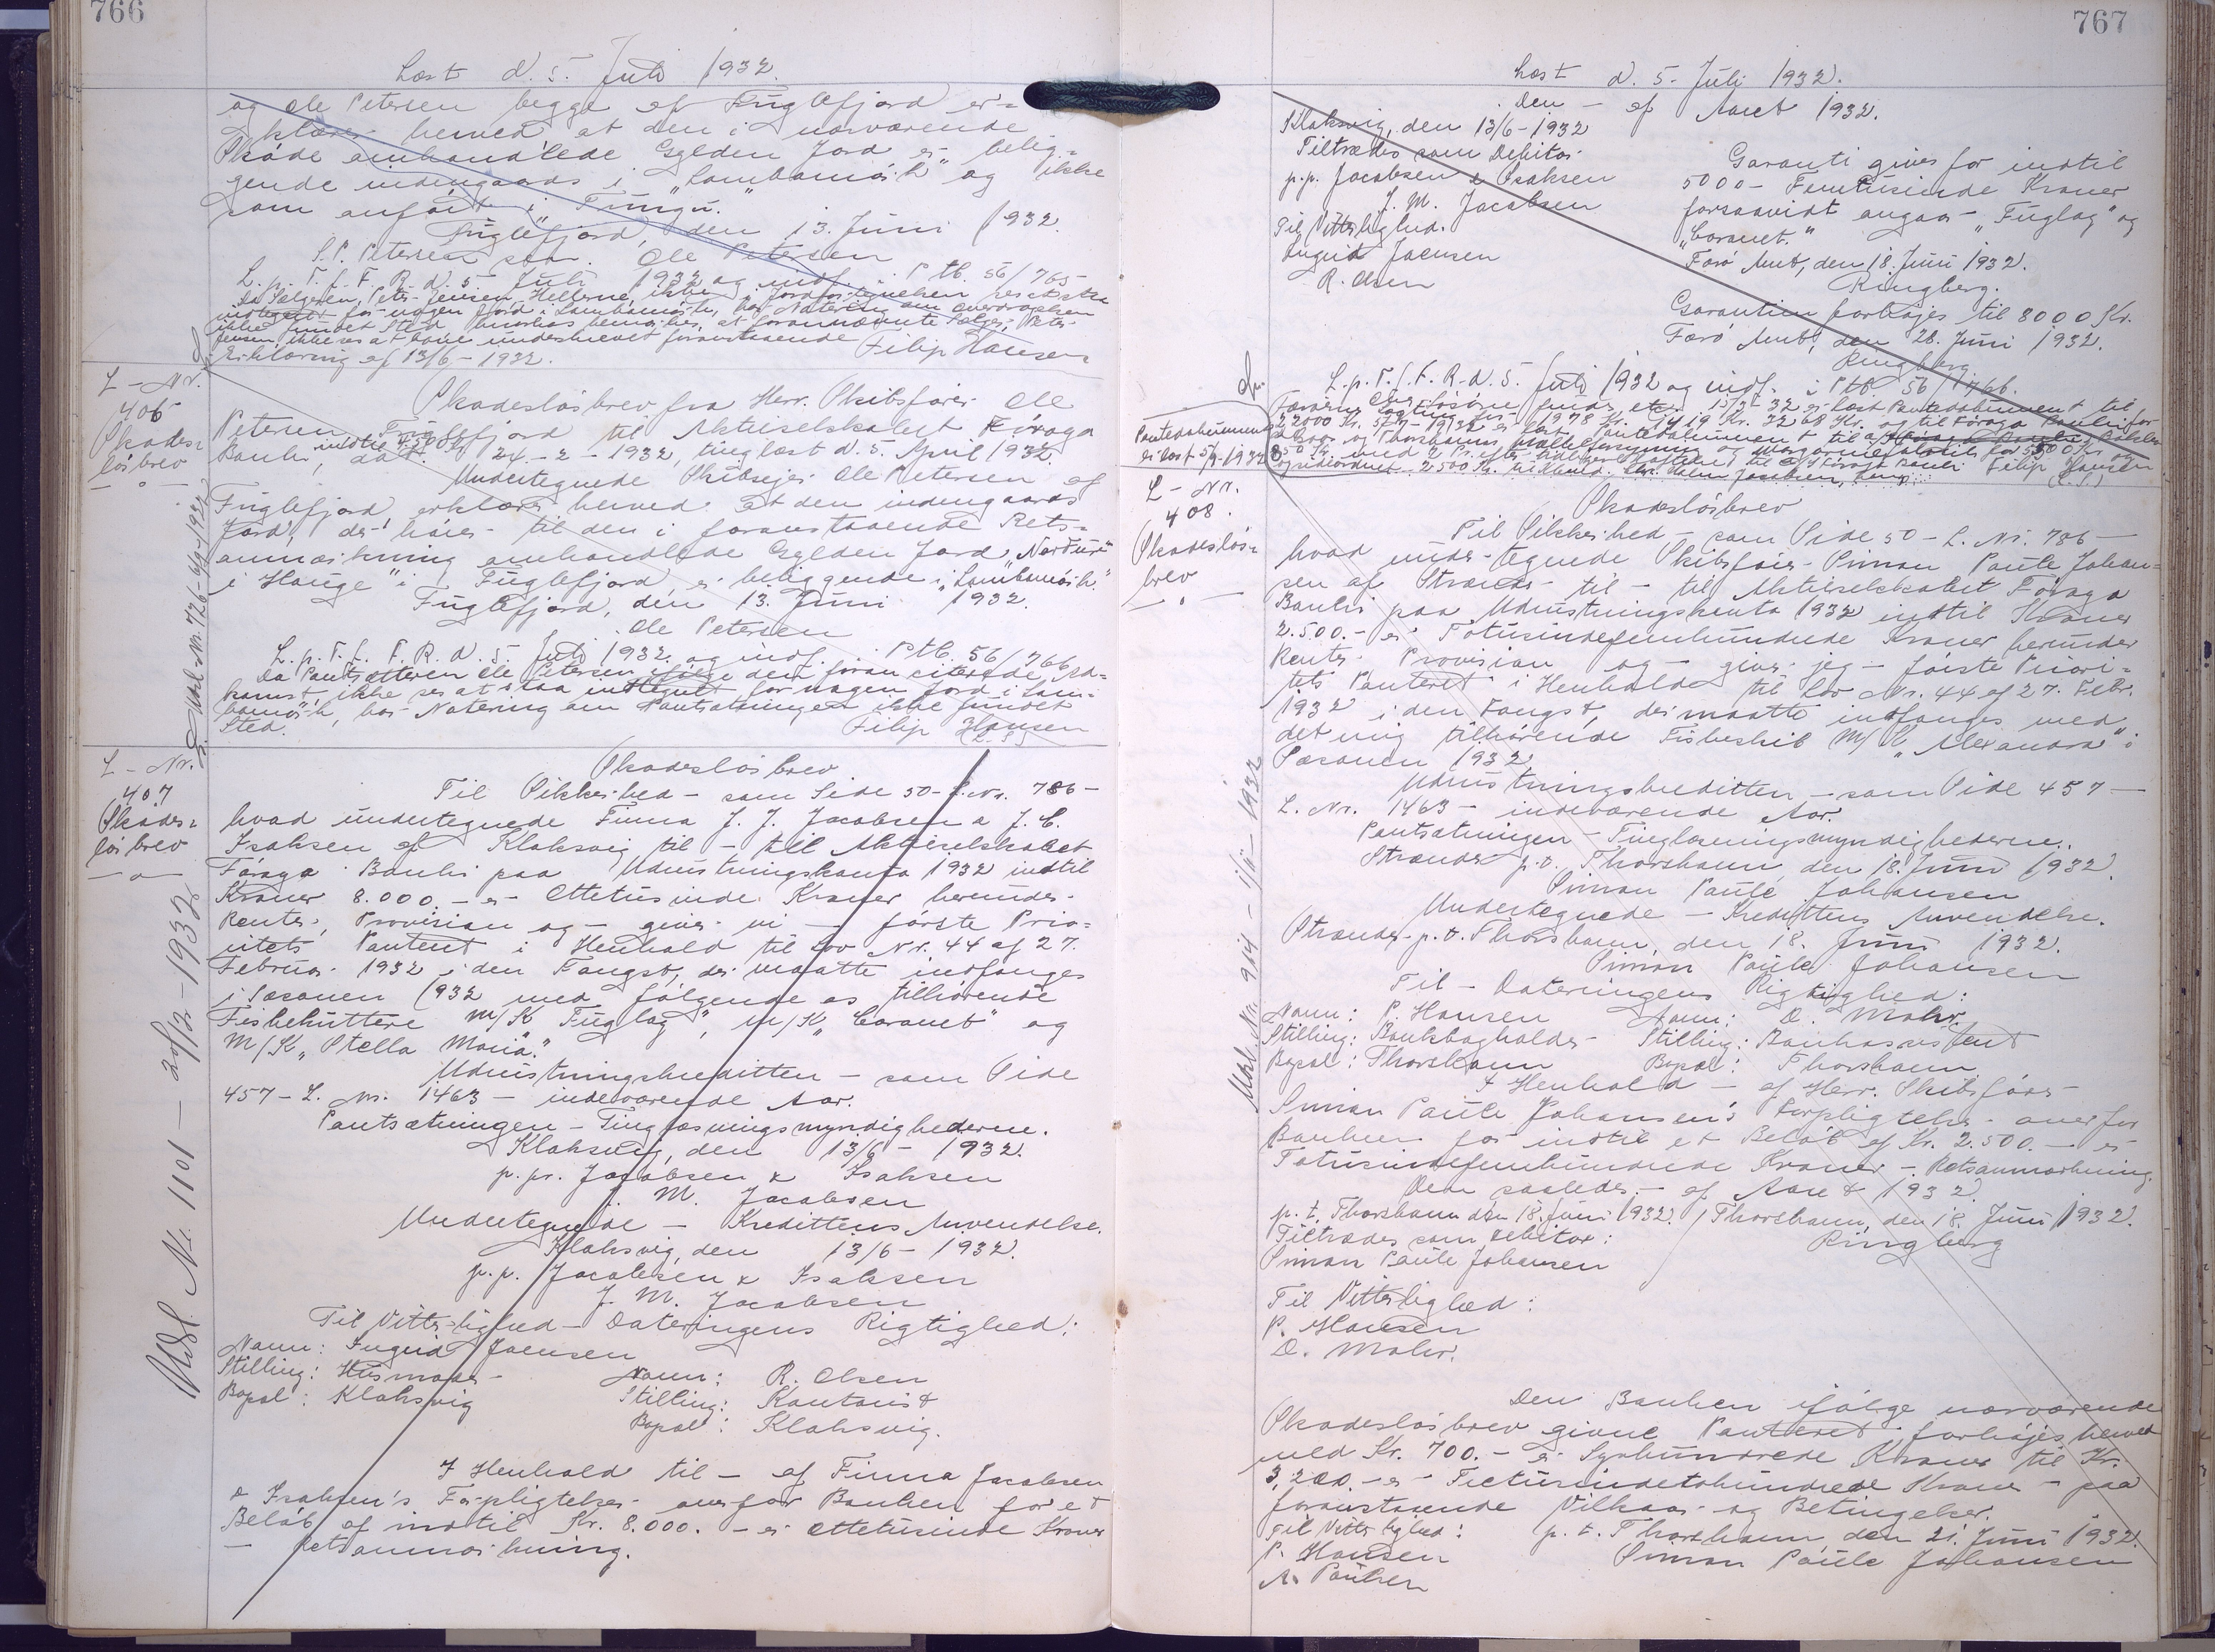 766
Læst d. 5. Juli 1932.
og Ole Petersen begge af Fuglefjord er=
klærer herved at den i nærværende
Skøde omhandlede Gylden Jord er belig=
gende indengaards i „Lambamørk" og ikke
som anført i
Fuglefjord, den 13. Juni 1932.
Ole Petersen
L. p. T. f. F. R. d. 5. Juli 1932 og indf. i Ptb. 56/765
Da Sælgeren, Peter Jensen, Hellerne, ikke i Jordfortegnelsen ses at staa
indtegnet for nogen Jord i Lambamørk, har Notering om Overdragelsen
ikke fundet Sted
Jensen ikke ses at have underskrevet foranstaaende
Erklæring af 13/6 - 1932.
Filip Hansen
L - Nr.
406
Skades=
løsbrev
Skadesløsbrev fra Herr. Skibsfører Ole
Petersen Fuglefjord til Aktieselskabet Føroya
Banki, indtil dat. 24.-2-1932, tinglæst d. 5. April 1932.
Undertegnede Skibsejer Ole Petersen af
Fuglefjord, erklærer herved at den indengaards
Jord, der hører til den i foranstaaende Rets=
anmærkning omhandlede Gylden Jord
i Hauge" i Fuglefjord, er beliggende i „Lambamørk."
Fuglefjord, den 13. Juni 1932.
Ole Petersen
L. p. T. f. F. R. d. 5. Juli 1932. og indf. i Ptb. 56/766
Da Pantsætteren Ole Petersen ifølge den foran citerede Ad=
komst, ikke ses at staa indtegnet for nogen Jord i Lam=
bamørk, har Notering om Pantsætningen ikke fundet
Sted.
Filip Hansen
(L. S.)
L - Nr.
407
Skades=
løsbrev
Udsl. Nr. 1101 - 20/12 - 1932
Skadesløsbrev
Til Sikkerhed - som Side 50 - L. Nr. 786 -
hvad undertegnede Firma J. J. Jacobsen & J. C.
Isaksen af Klaksvig til - til Aktieselskabet
Føroya Banki paa Udrustningskonto 1932 indtil
Kroner 8.000. - er Ottetusinde Kroner herunder
Renter, Provision og - giver vi - første Prio=
ritets Panteret i Henhold til Lov Nr. 44 af 27.
Februar 1932 i den Fangst, der maatte indfanges
i Sæsonen 1932 med følgende os tilhørende
Fiskekuttere M/K „Fuglag", M/K „Coronet" og
M/K „Stella Maria."
Udrustningskreditten - som Side
457 - L. Nr. 1463 - indeværende Aar.
Pantsætningen - Tinglæsningsmyndighederne.
Klaksvig, den 13/6 - 1932.
p. pr. Jacobsen & Isaksen
J. M. Jacobsen
Undertegnede - Kredittens Anvendelse.
Klaksvig, den 13/6 - 1932.
p. p. Jacobsen & Isaksen
J. M. Jacobsen
Til Vitterlighed - Dateringens Rigtighed:
Navn: Ingrid Joensen
Stilling: Husmoder
Bopæl: Klaksvig
Navn: R. Olsen
Stilling: Kontorist
Bopæl: Klaksvig.
I Henhold til - af Firma Jacobsen
& Isaksen's Forpligtelser overfor Banken for et
Beløb af indtil Kr. 8.000. - er Ottetusinde Kroner
- Retsanmærkning.
767
Læst d. 5. Juli 1932.
Den - af Aaret 1932.
Klaksvig, den 13/6 - 1932
Tiltrædes som Debitor
p.p. Jacobsen & Isaksen
J. M. Jacobsen
Til Vitterlighed.
Ingrid Joensen
R. Olsen
Garanti gives for indtil
5000 - Femtusinde Kroner
forsaavidt angaar - „Fuglag" og
„Coronet."
Færø Amt, den 18. Juni 1932.
Ringberg.
Garantien forhøjes til 8000 Kr.
Færø Amt, den 28. Juni 1932.
Ringberg.
L. p. T. f. F. R. d. 5. Juli 1932 og indf. i Ptb. 56/766.
Filip Hansen
(L. S.)
Pantedokument
er læst 5/7-1932
L - Nr.
408.
Skadesløs=
brev
Udsl. Nr. 914 - 1/11 - 1932
Skadesløsbrev
Til Sikkerhed - som Side 50 - L. Nr. 786 -
hvad undertegnede Skibsfører Simon Paule Johan=
sen af Strænder til - til Aktieselskabet Føroya
Banki paa Udrustningskonto 1932 indtil Kroner
2.500. - er Totusindefemhundrede Kroner herunder
Renter Provision og - giver jeg - første Priori=
tets Panteret i Henhold til Lov Nr. 44 af 27. Febr.
1932 i den Fangst, der maatte indfanges med
det mig tilhørende Fiskeskib M/K „Alexandra" i
Sæsonen 1932.
Udrustningskreditten - som Side 457 -
L. Nr. 1463 - indeværende Aar.
Pantsætningen - Tinglæsningsmyndighederne.
Strænder p. t. Thorshavn, den 18. Juni 1932.
Simon Paule Johansen
Undertegnede - Kredittens Anvendelse.
Strænder p. t. Thorshavn, den 18. Juni 1932.
Simon Paule Johansen
Til - Dateringens Rigtighed:
Navn: P. Hansen Navn: D. Mohr.
Stilling: Bankbogholder Stilling: Bankassistent
Bopæl: Thorshavn Bopæl: Thorshavn
I Henhold - af Herr. Skibsfører
Simon Paule Johansen's Forpligtelser overfor
Banken for indtil et Beløb af Kr. 2.500. - er
Totusindefemhundrede Kroner - Retsanmærkning.
Den saaledes - af Aaret 1932.
p. t. Thorshavn den 18. Juni 1932. / Thorshavn, den 18. Juni 1932.
Tiltrædes som Debitor: Ringberg
Simon Paule Johansen
Til Vitterlighed:
P. Hansen
D. Mohr.
Den Banken ifølge nærværende
Skadesløsbrev givne Panteret forhøjes herved
med Kr. 700. - er Syvhundrede Kroner til Kr.
3.200. - er Tretusindetohundrede Kroner - paa
foranstaaende Vilkaar og Betingelser.
Til Vitterlighed: p. t. Thorshavn, den 21. Juni 1932.
P. Hansen Simon Paule Johansen
A. Paulsen